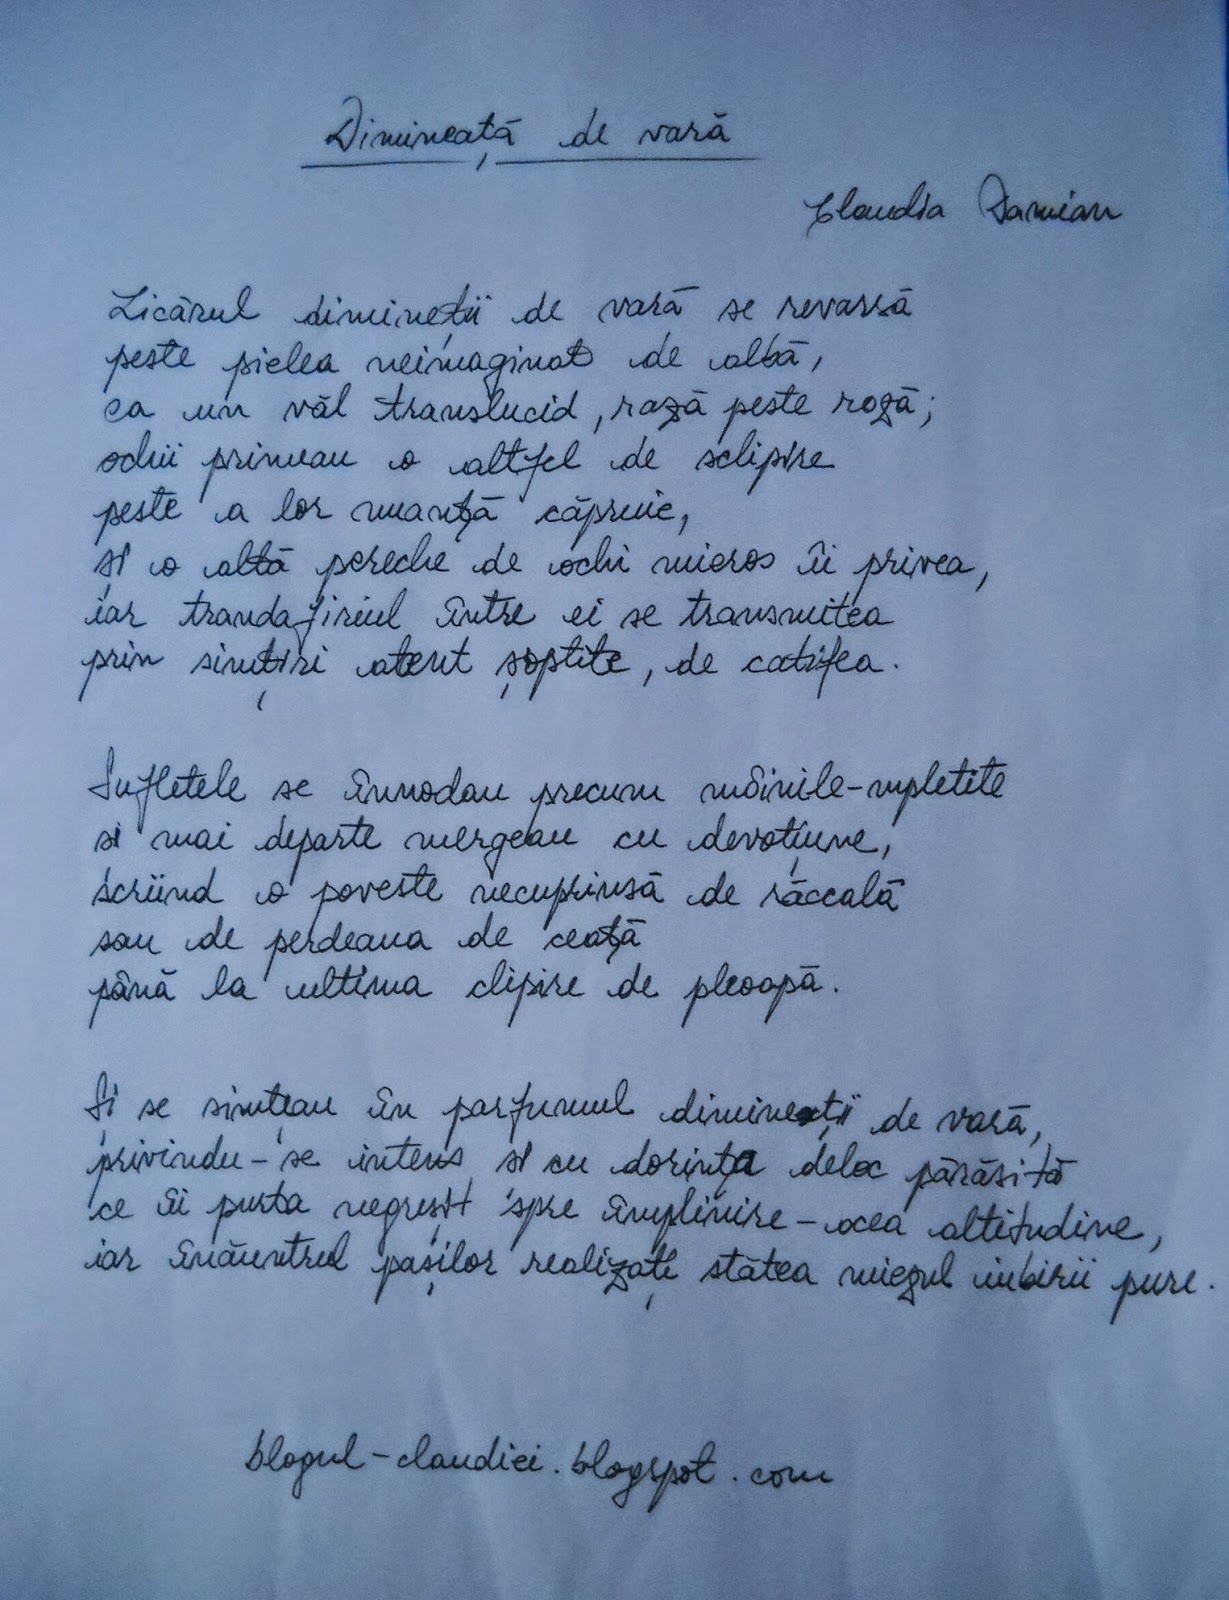 Dimineață de vară
Claudia Damian
Licărul dimineții de vară se revarsă
peste pielea neimaginat de albă,
ca un văl translucid, rază peste rază;
ochii primeau o altfel de sclipire
peste a lor nuanță căpruie,
și o altă pereche de ochi mieros îi privea,
iar trandafiriul între ei se transmitea
prin simțiri atent șoptite, de catifea.
Sufletele se înnodau precum mâinile-mpletite
si mai departe mergeau cu devoțiune,
scriind o poveste necuprinsă de răceală
sau de perdeaua de ceață
până la ultima clipire de pleoapă.
Și se simțeau în parfumul dimineții de vară,
privindu-se intens și cu dorința deloc părăsită
ce îi purta negreșit spre împlinire-acea altitudine,
iar înăuntrul pașilor realizați stătea miezul iubirii pure.
blogul-claudiei.blogspot.com